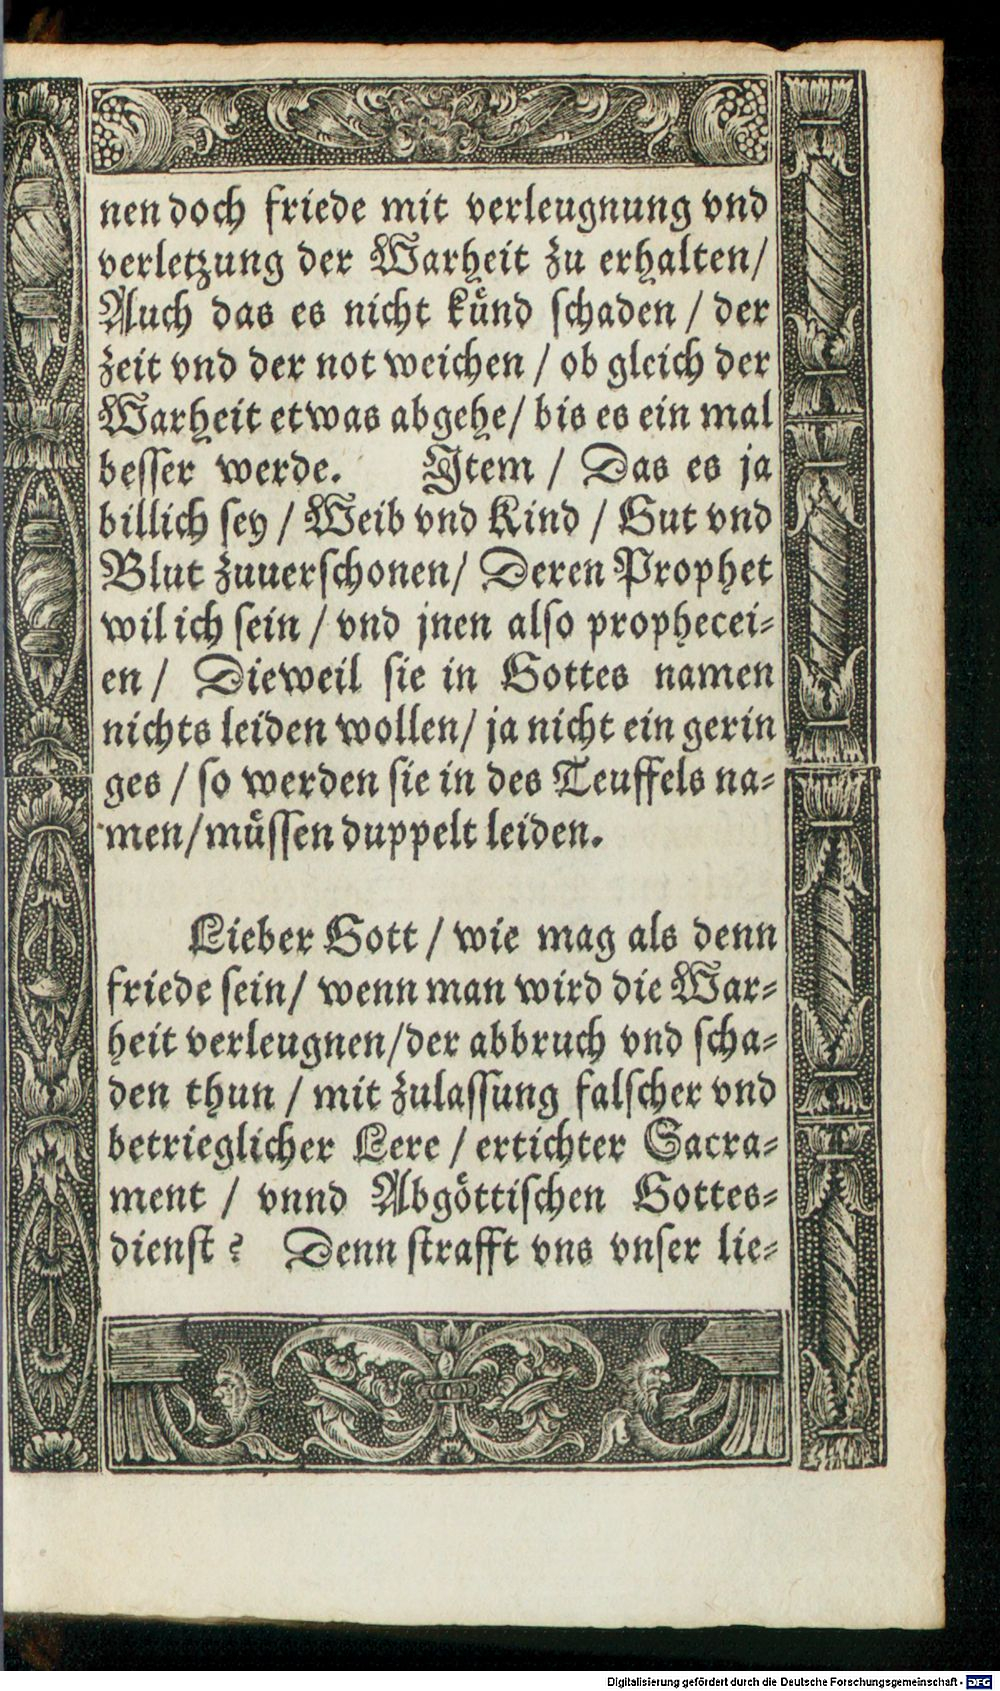 nen doch friede mit verleugnung vnd
verletzung der Warheit zu erhalten/
Auch das es nicht kuͤnd schaden / der
zeit vnd der not weichen / ob gleich der
Warheit etwas abgehe/ bis es ein mal
besser werde. Jtem / Das es ja
billich sey / Weib vnd Kind / Gut vnd
Blut zuuerschonen/ Deren Prophet
wil ich sein / vnd jnen also prophecei-
en / Dieweil sie in Gottes namen
nichts leiden wollen/ ja nicht ein gerin
ges / so werden sie in des Teuffels na-
men/ muͤssen duppelt leiden.
Lieber Gott / wie mag als denn
friede sein/ wenn man wird die War-
heit verleugnen/der abbruch vnd scha-
den thun / mit zulassung falscher vnd
betrieglicher Lere / ertichter Sacra-
ment / vnnd Abgöttischen Gottes-
dienst? Denn strafft vns vnser lie-
Digitalisierung gefördert durch die Deutsche Forschungsgemeinschaft - DFG